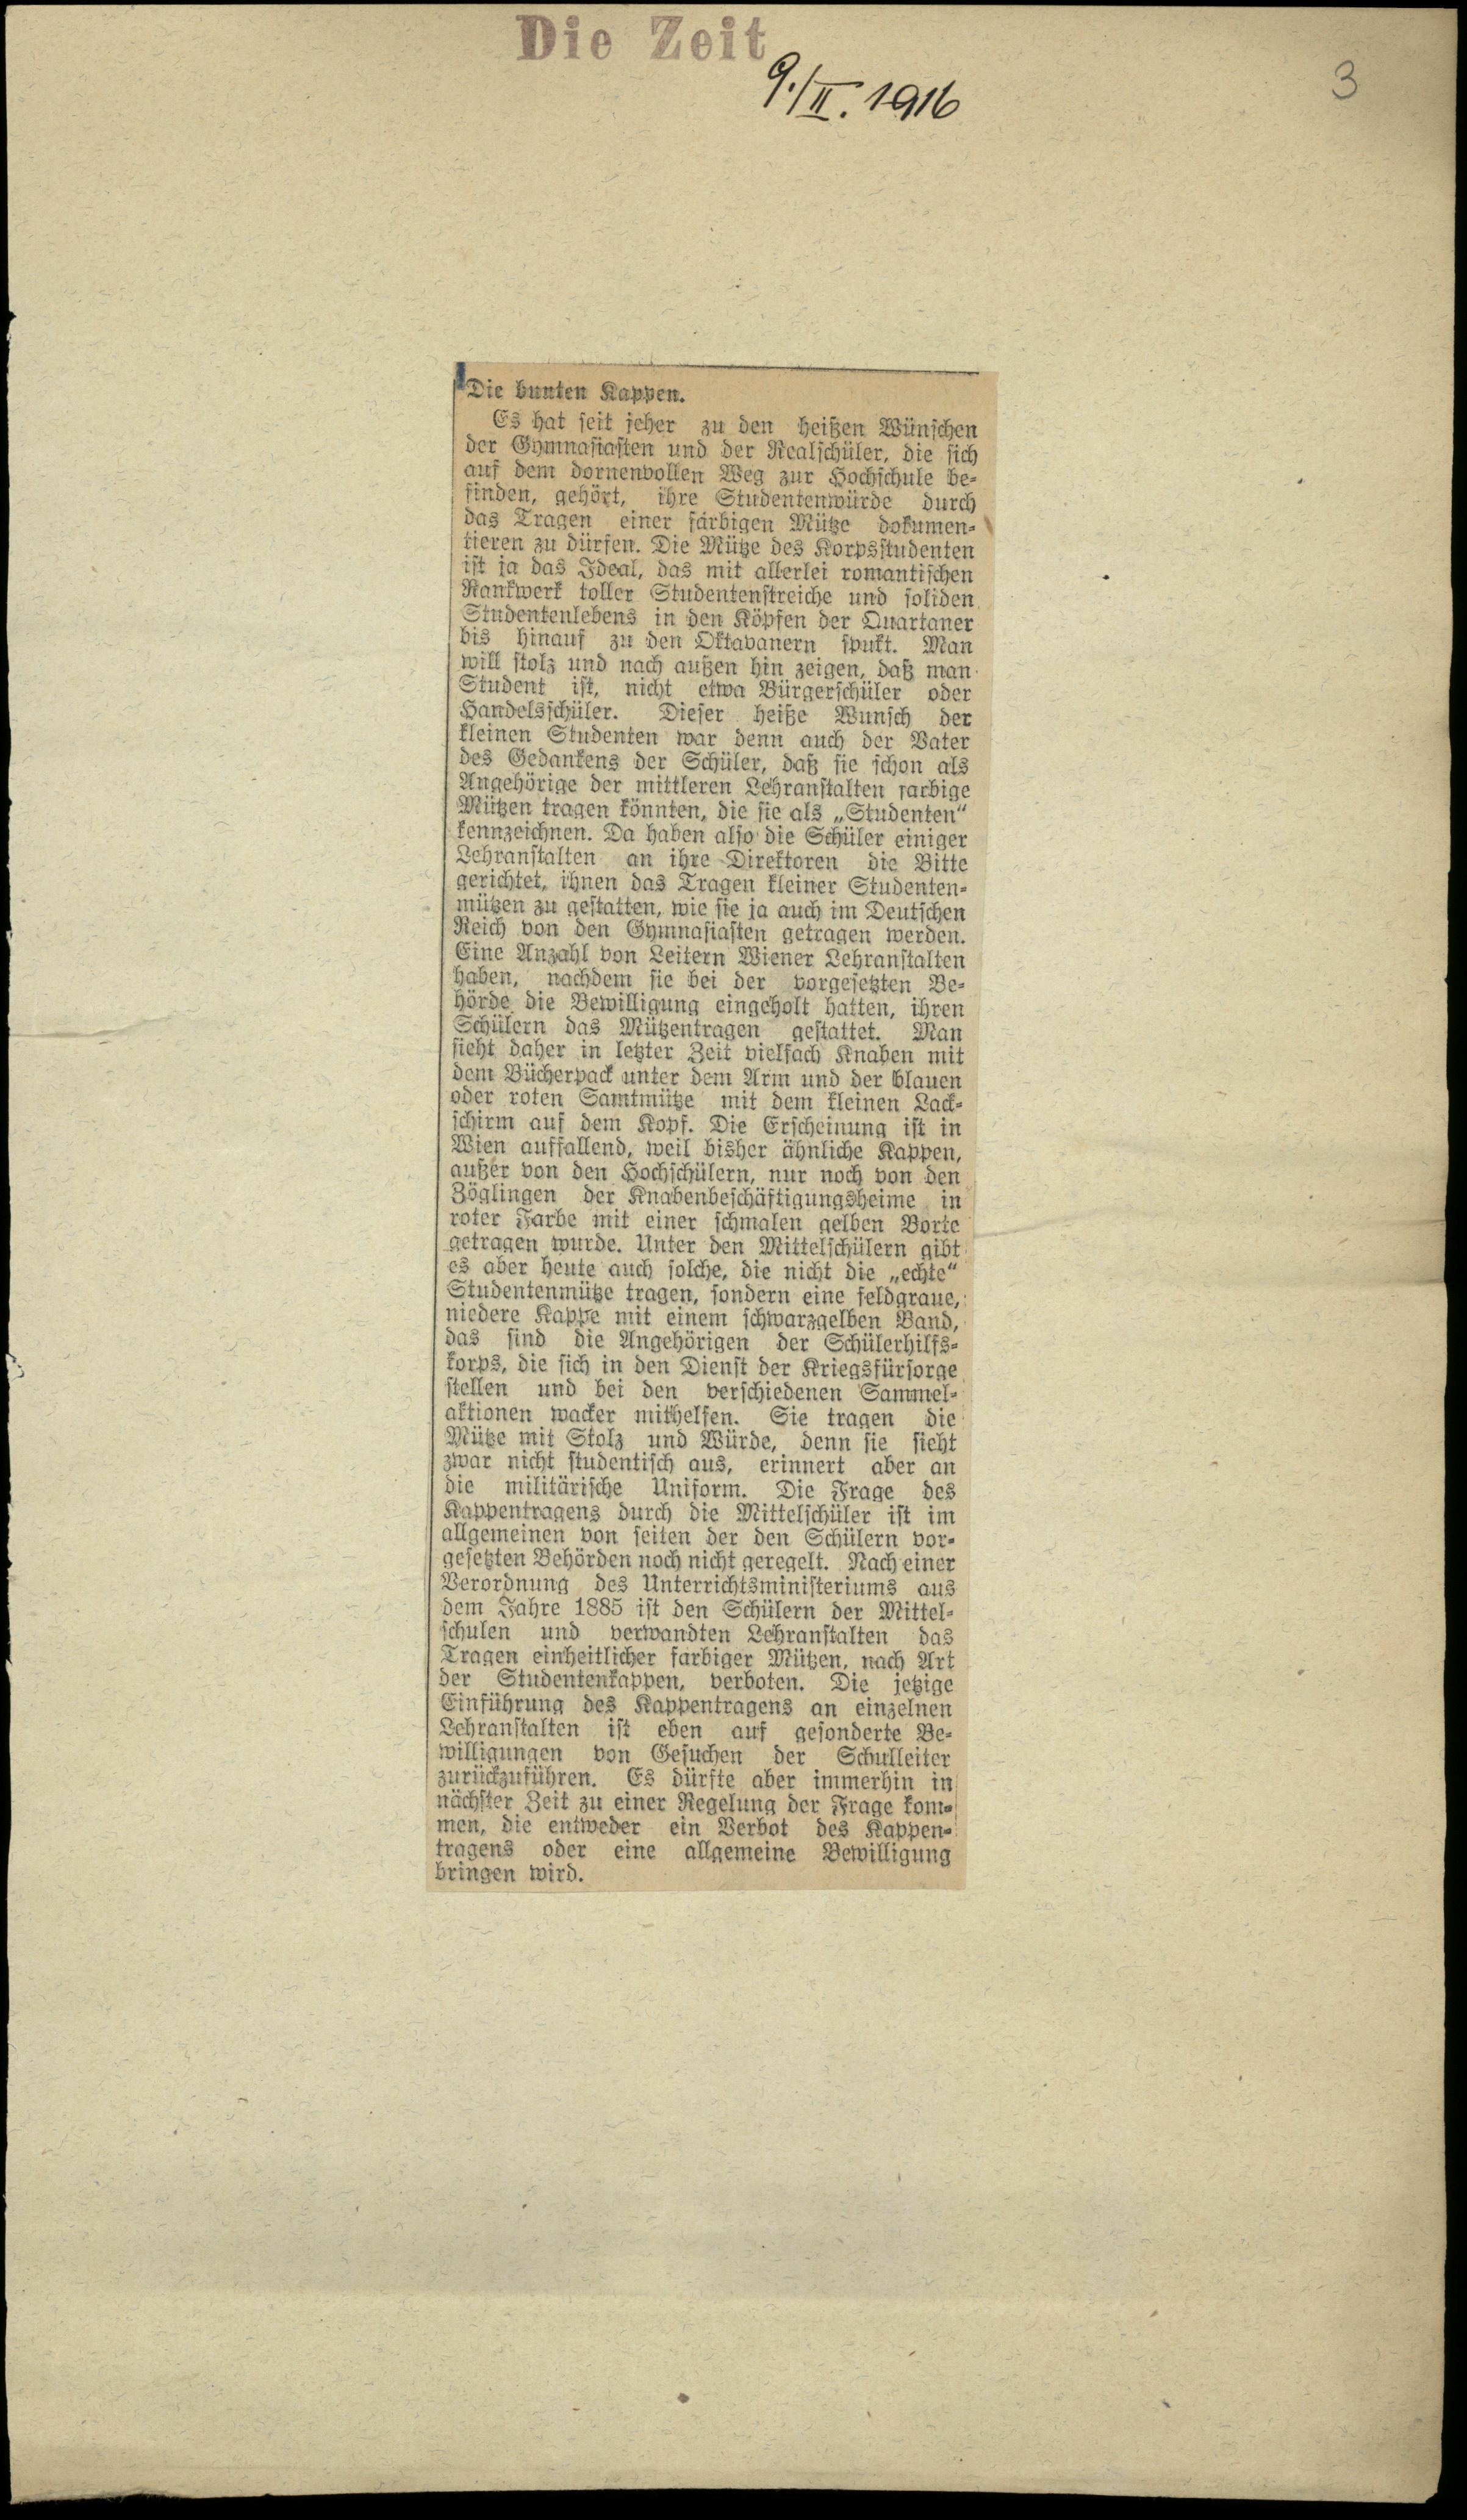 Die Zeit
9./II. 1916
3
Die bunten Kappen.
Es hat seit jeher zu den heißen Wünschen
der Gymnasiasten und der Realschüler, die sich
auf dem dornenvollen Weg zur Hochschule be-
finden, gehört, ihre Studentenwürde durch
das Tragen einer färbigen Mütze dokumen-
tieren zu dürfen. Die Mütze des Korpsstudenten
ist ja das Ideal, das mit allerlei romantischen
Rankwerk toller Studentenstreiche und soliden
Studentenlebens in den Köpfen der Quartaner
bis hinauf zu den Oktavanern spukt. Man
will stolz und nach außen hin zeigen, daß man
Student ist, nicht etwa Bürgerschüler oder
Handelsschüler. Dieser heiße Wunsch der
kleinen Studenten war denn auch der Vater
des Gedankens der Schüler, daß sie schon als
Angehörige der mittleren Lehranstalten farbige
Mützen tragen könnten, die sie als „Studenten“
kennzeichnen. Da haben also die Schüler einiger
Lehranstalten an ihre Direktoren die Bitte
gerichtet, ihnen das Tragen kleiner Studenten-
mützen zu gestatten, wie sie ja auch im Deutschen
Reich von den Gymnasiasten getragen werden.
Eine Anzahl von Leitern Wiener Lehranstalten
haben, nachdem sie bei der vorgesetzten Be-
hörde die Bewilligung eingeholt hatten, ihren
Schülern das Mützentragen gestattet. Man
sieht daher in letzter Zeit vielfach Knaben mit
dem Bücherpack unter dem Arm und der blauen
oder roten Samtmütze mit dem kleinen Lack-
schirm auf dem Kopf. Die Erscheinung ist in
Wien auffallend, weil bisher ähnliche Kappen,
außer von den Hochschülern, nur noch von den
Zöglingen der Knabenbeschäftigungsheime in
roter Farbe mit einer schmalen gelben Borte
getragen wurde. Unter den Mittelschülern gibt
es aber heute auch solche, die nicht die „echte“
Studentenmütze tragen, sondern eine feldgraue,
niedere Kappe mit einem schwarzgelben Band,
das sind die Angehörigen der Schülerhilfs-
korps, die sich in den Dienst der Kriegsfürsorge
stellen und bei den verschiedenen Sammel-
aktionen wacker mithelfen. Sie tragen die
Mütze mit Stolz und Würde, denn sie sieht
zwar nicht studentisch aus, erinnert aber an
die militärische Uniform. Die Frage des
Kappentragens durch die Mittelschüler ist im
allgemeinen von seiten der den Schülern vor-
gesetzten Behörden noch nicht geregelt. Nach einer
Verordnung des Unterrichtsministeriums aus
dem Jahre 1885 ist den Schülern der Mittel-
schulen und verwandten Lehranstalten das
Tragen einheitlicher farbiger Mützen, nach Art
der Studentenkappen, verboten. Die jetzige
Einführung des Kappentragens an einzelnen
Lehranstalten ist eben auf gesonderte Be-
willigungen von Gesuchen der Schulleiter
zurückzuführen. Es dürfte aber immerhin in
nächster Zeit zu einer Regelung der Frage kom-
men, die entweder ein Verbot des Kappen-
tragens oder eine allgemeine Bewilligung
bringen wird.